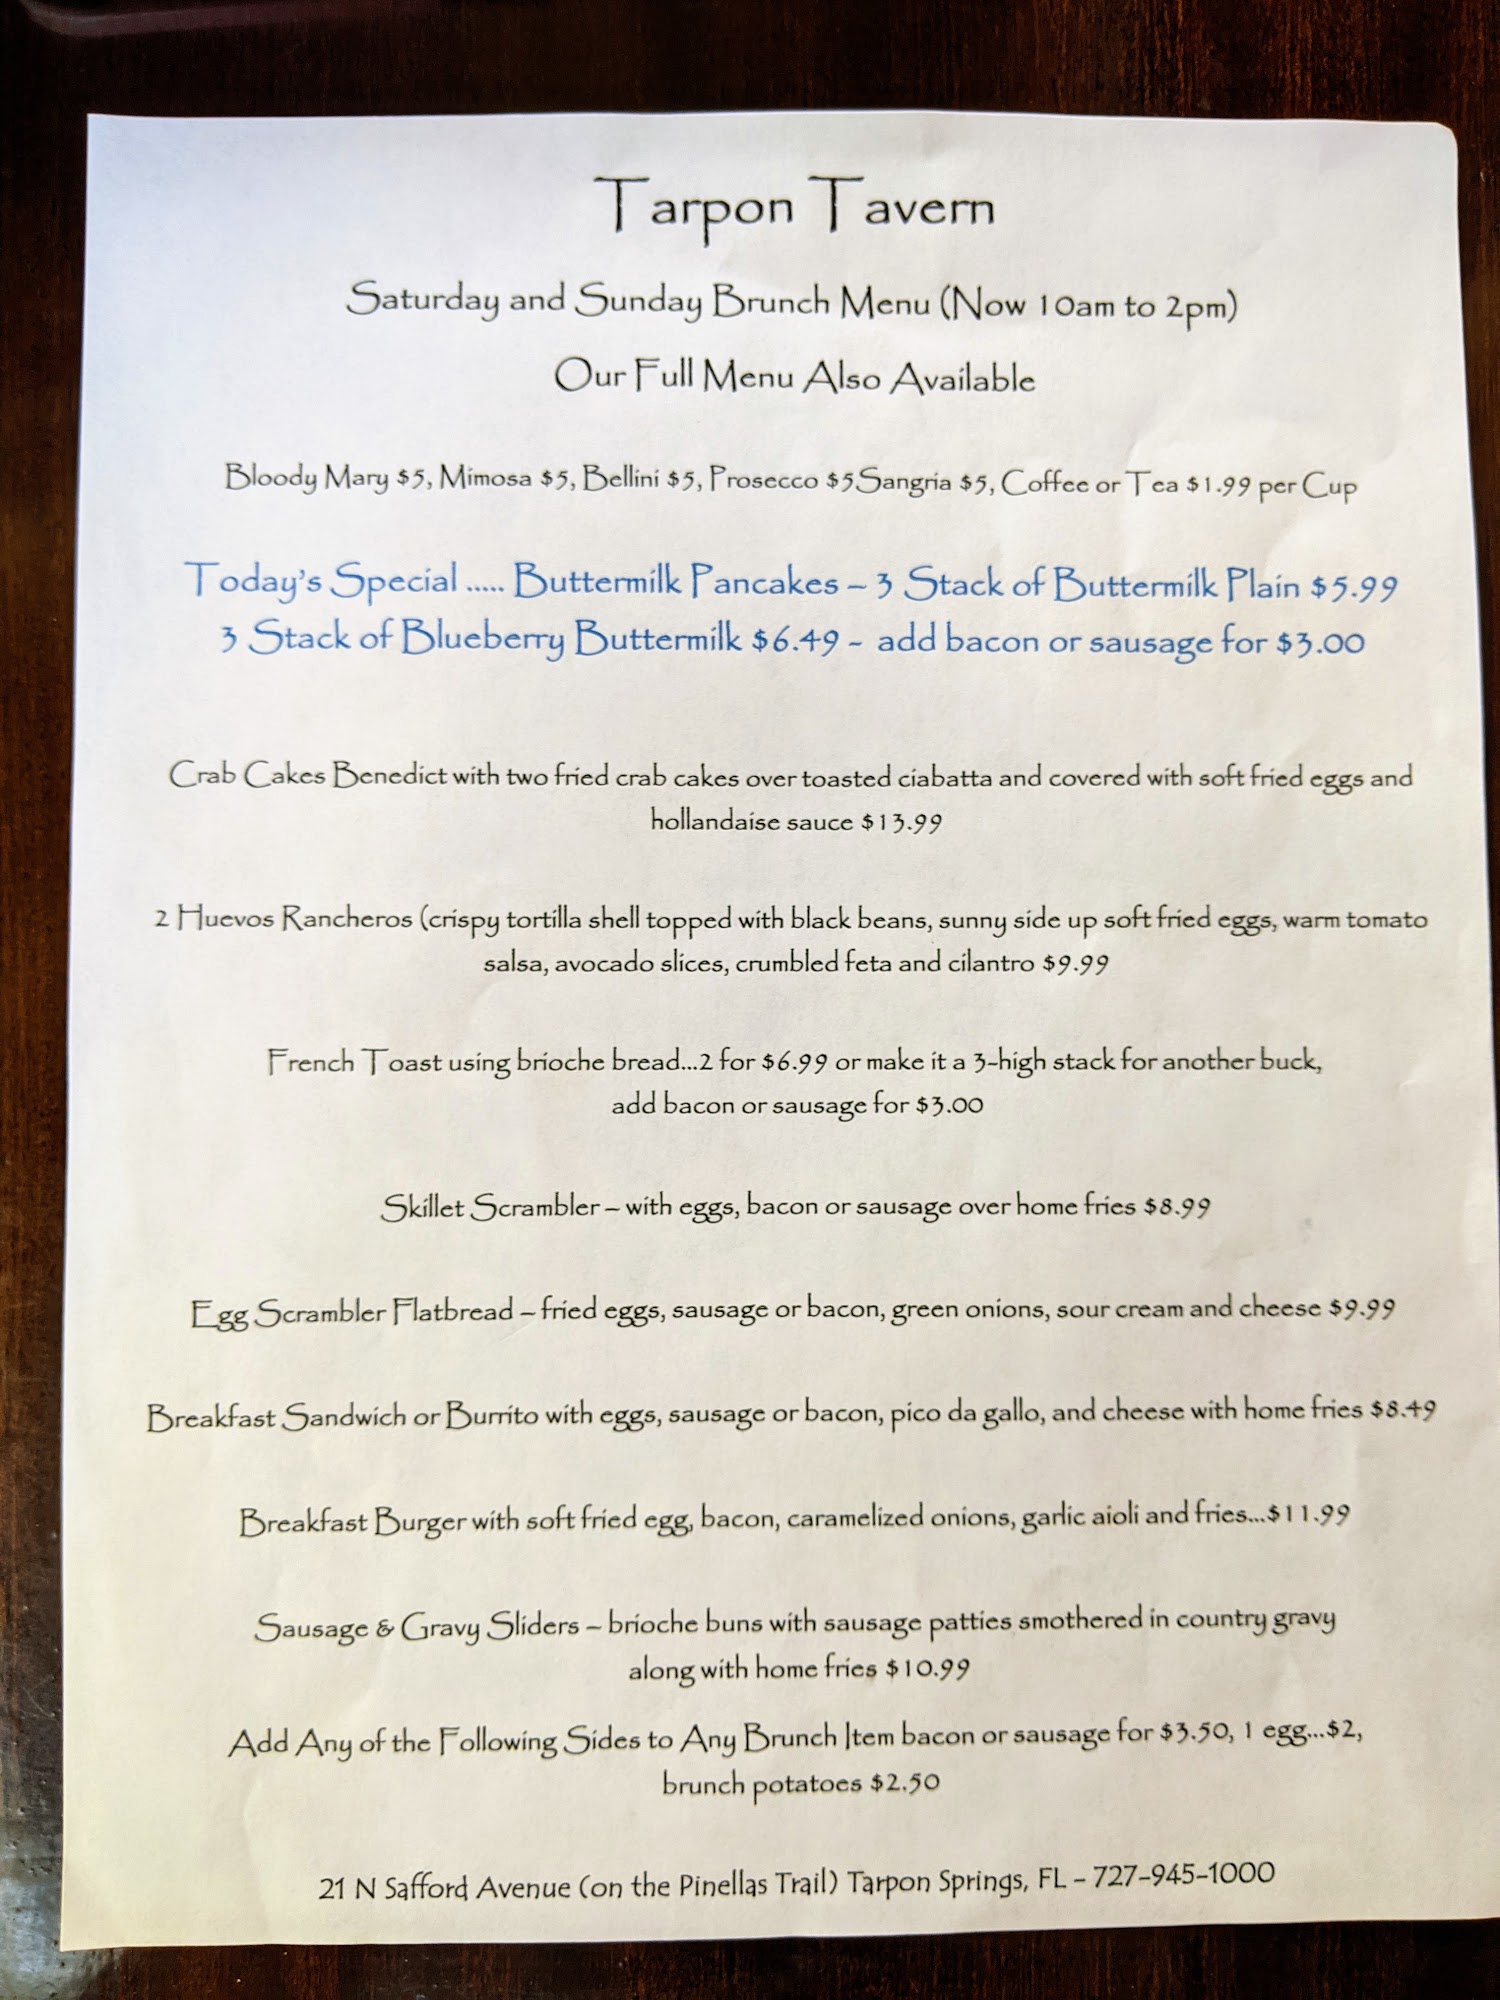 Tarpon Tavern
Saturday and Sunday Brunch Menu (Now 10am to 2pm)
Our Full Menu Also Available
Bloody Mary $5, Mimosa $5, Bellini $5, Prosecco $5Sangria $5, Coffee or Tea $1.99 per Cup
Today's Special ..... Buttermilk Pancakes – 3 Stack of Buttermilk Plain $5.99
3 Stack of Blueberry Buttermilk $6.49 - add bacon or sausage for $3.00
Crab Cakes Benedict with two fried crab cakes over toasted ciabatta and covered with soft fried eggs and
hollandaise sauce $13.99
2 Huevos Rancheros (crispy tortilla shell topped with black beans, sunny side up soft fried eggs, warm tomato
salsa, avocado slices, crumbled feta and cilantro $9.99
French Toast using brioche bread...2 for $6.99 or make it a 3-high stack for another buck,
add bacon or sausage for $3.00
Skillet Scrambler – with eggs, bacon or sausage over home fries $8.99
Egg Scrambler Flatbread – fried eggs, sausage or bacon, green onions, sour cream and cheese $9.99
Breakfast Sandwich or Burrito with eggs, sausage or bacon, pico da gallo, and cheese with home fries $8.49
Breakfast Burger with soft fried egg, bacon, caramelized onions, garlic aioli and fries...$11.99
Sausage & Gravy Sliders – brioche buns with sausage patties smothered in country gravy
along with home fries $10.99
Add Any of the Following Sides to Any Brunch Item bacon or sausage for $3.50, 1 egg...$2,
brunch potatoes $2.50
21 N Safford Avenue (on the Pinellas Trail) Tarpon Springs, FL - 727-945-1000